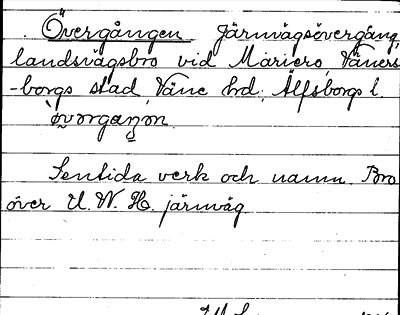 Övergången järnvägsövergång,
landsvägsbro vid Mariero, Väners-
-borgs stad Väne hd, Älfsborgs l.
Sentida verk och namn. Bro
över U. W. H. järnväg